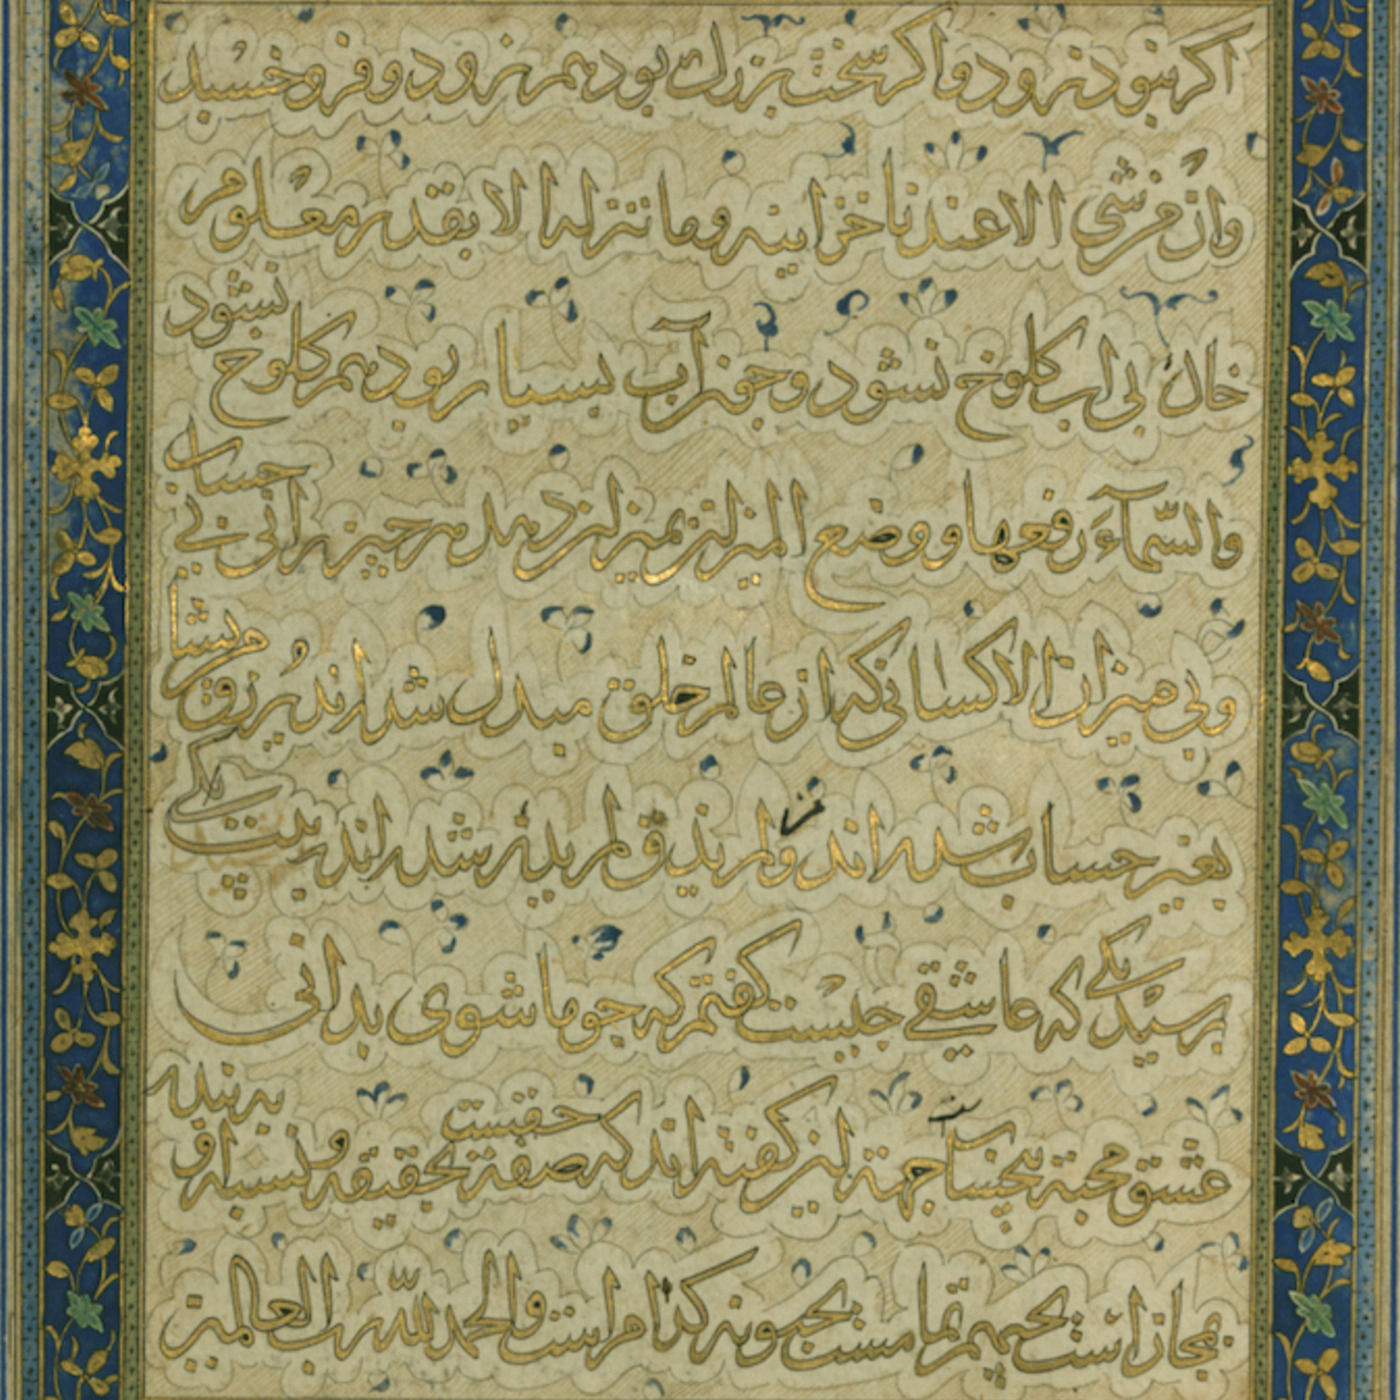 اکر نبود نرود و اکر سخت بزرك بود هم نرود و فرو خسبد
وان من شی الا عندنا خزاینه وما ننزله الا بقدر معلوم
خاك بی اب کلوخ نشود و جون آب بسیار بود هم کلوخ نشود
والسّمآءَ رفعها و وضع المیزان میزان دهد هر چیز رانی بی حساب
وبی میزان الا کسانی که از عالم خلق مبدل شده اند یُرزق من یشا
بغیر حساب شده اند ولم یذق لم یدر شده اند بیت
پرسید یکی که عاشقی جیست کفتم که جو ما شوی بدانی
عشق محبة بیحسابست جهة این کفته اند که صفة حقست بحقیقه و نسبة او به بنده
مجاز است یحبهم تمامست یحبونه کدام است والحمد للّه رب العالمین